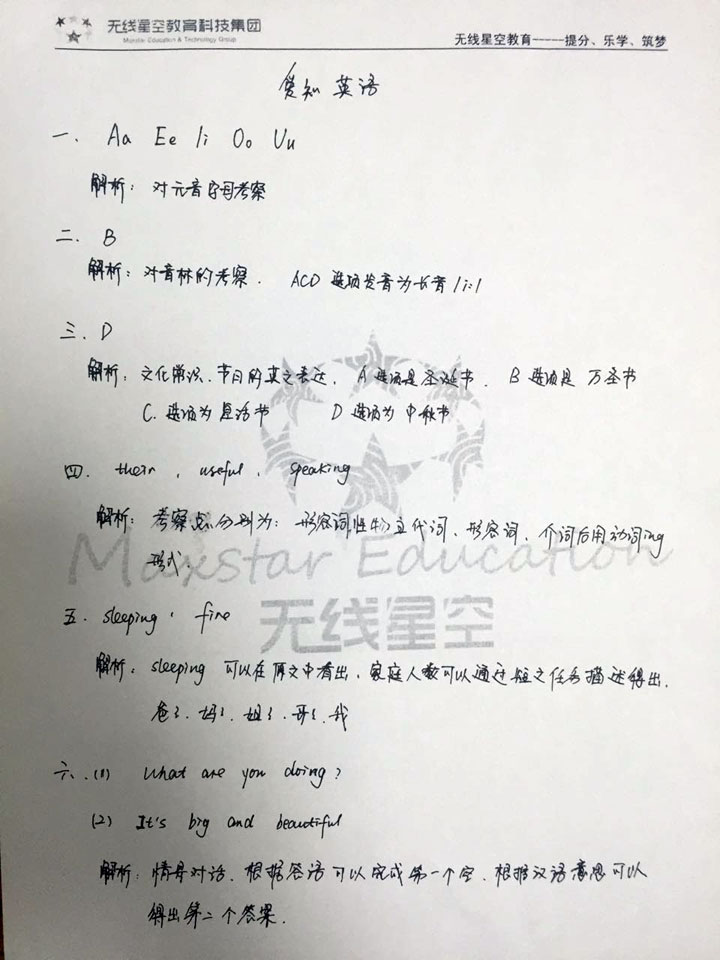 无线星空教育科技集团
Maxstar Education & Technology Group
无线星空教育-----提分、乐学、筑梦
爱知 英语
一. Aa Ee Ii Oo Uu
解析: 对元音字母考察
二. B
解析: 对音标的考察. ACD 选项发音为长音 /i:/
三. D
解析: 文化常识、节日的英文表达, A 选项是圣诞节. B 选项是 万圣节
C. 选项为 复活节 D 选项为 中秋节
四. their , useful , speaking
解析: 考察点分别为: 形容词性物主代词、形容词、介词后用动词ing
形式.
Maxstar Education
无线星空
五. sleeping , fine
解析: sleeping 可以在原文中看出, 家庭人数可以通过短文任务描述得出.
爸爸、妈妈、姐姐、哥哥、我
六. (1) What are you doing?
(2) It's big and beautiful
解析: 情景对话. 根据答语可以完成第一个空. 根据汉语意思可以
得出第二个答案.